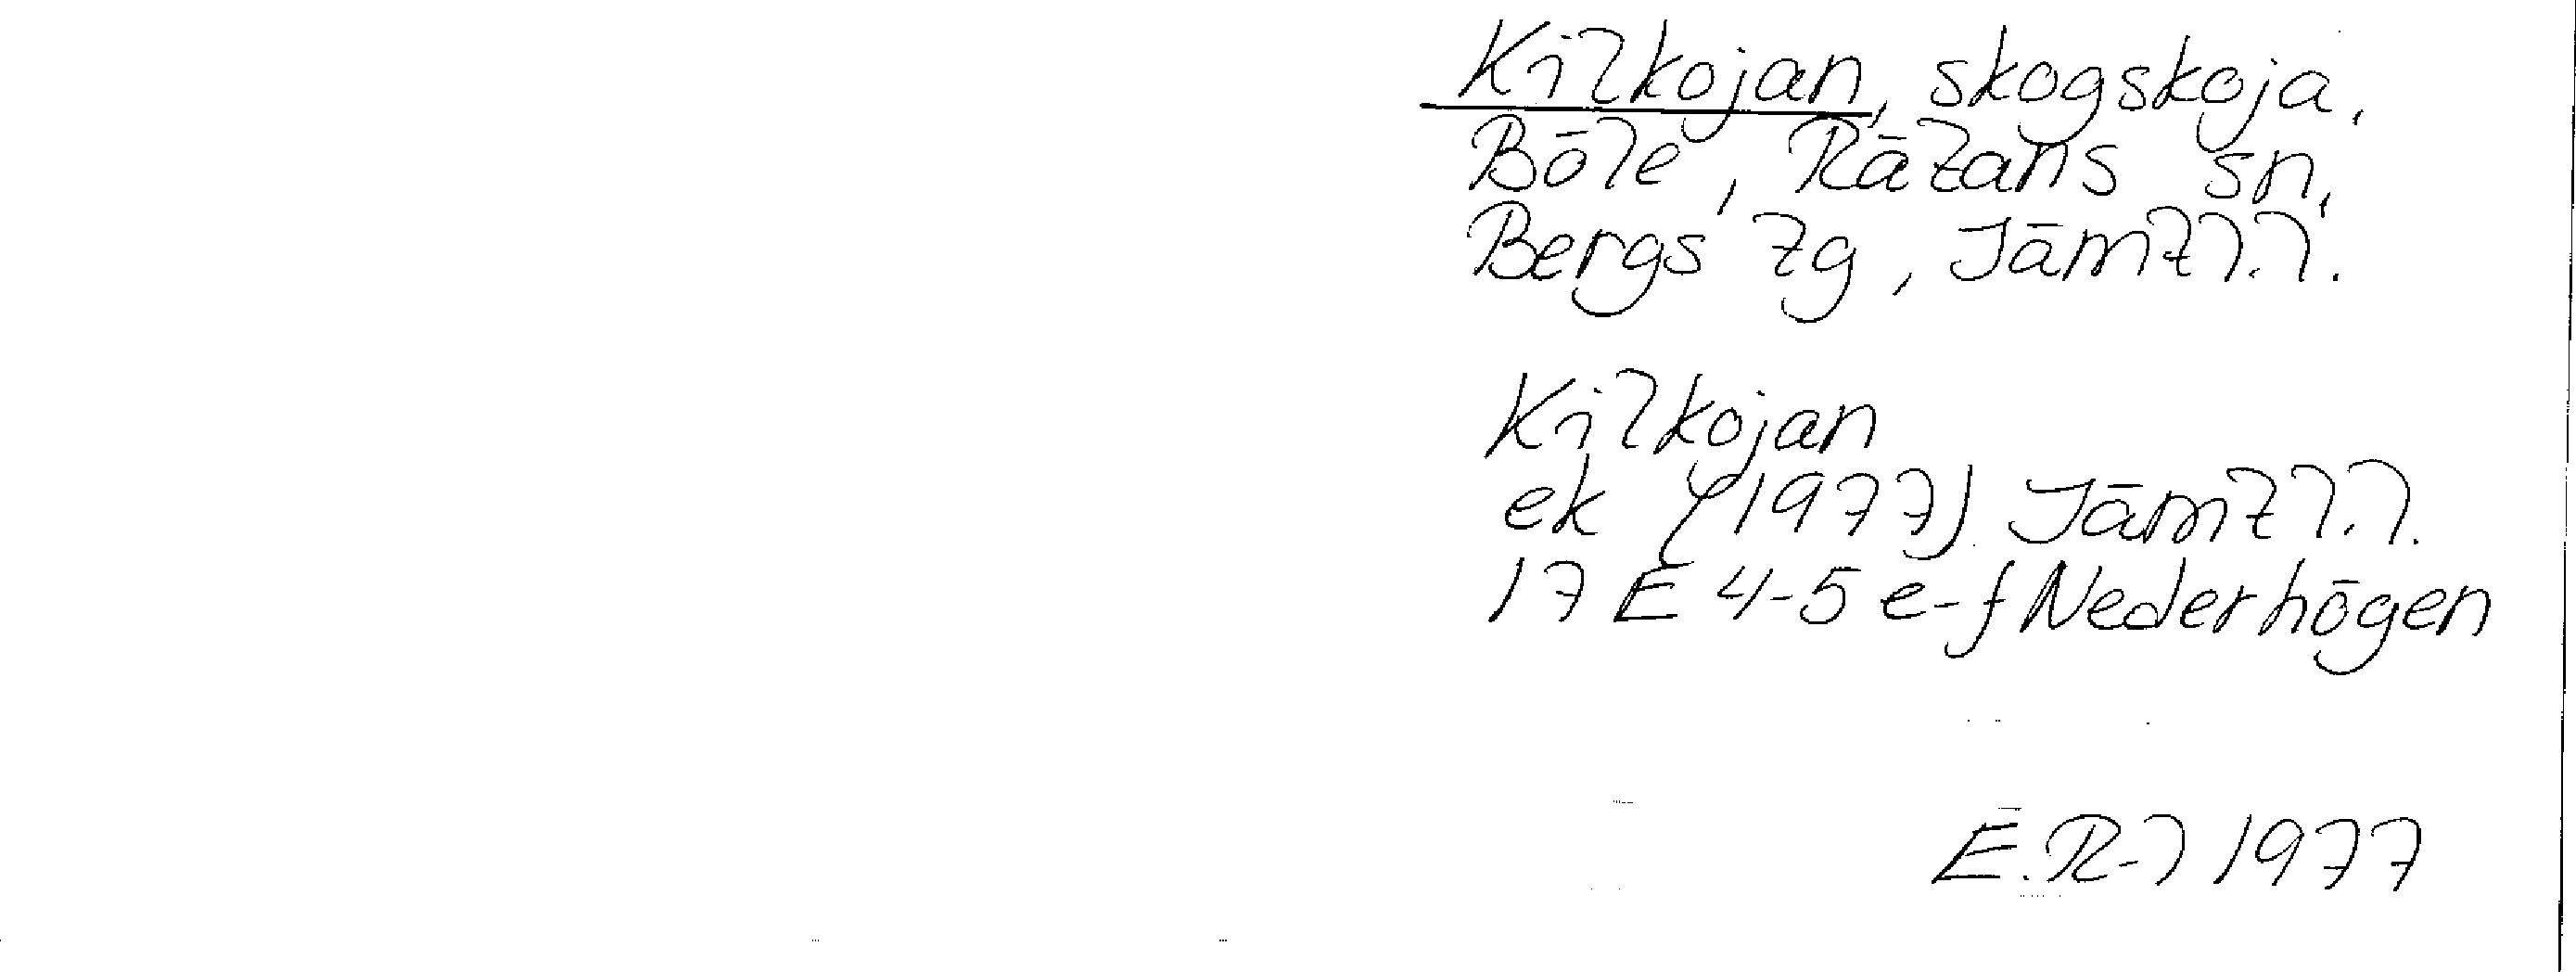 Kilkojan, skogskoja,
Böle, Rätans sn,
Bergs tg, Jämtl.l.
Kilkojan
ek (1977) Jämtl.l.
17 E 4-5 e-f Nederhögen
E.R-l 1977